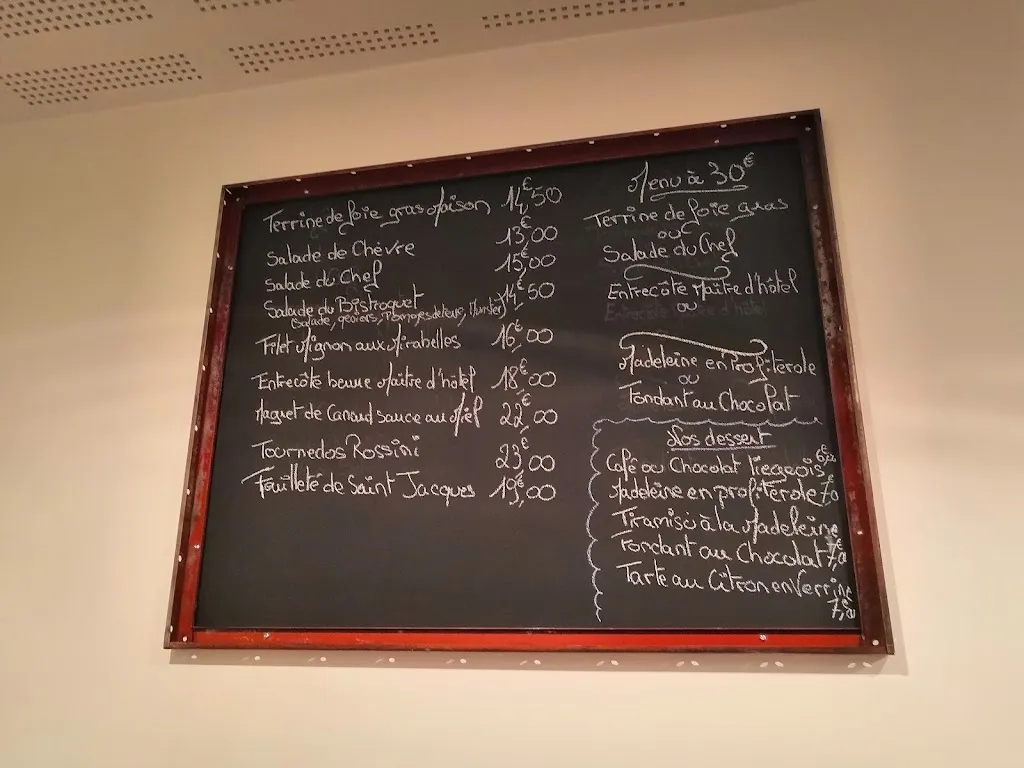 Terrine de foie gras Maison 14,€50
Salade de Chèvre 13,€00
Salade du Chef 15,€00
Salade du Bistroquet 14,€50
(Salade, gésiers, Munster)
Filet Mignon aux Mirabelles 16,€00
Entrecôte beurre Maître d'hôtel 18,€00
Magret de Canard sauce au Miel 22,€00
Tournedos Rossini 23,€00
Feuilleté de Saint Jacques 19,€00
Menu à 30€
Terrine de foie gras
ou
Salade du Chef
Entrecôte Maître d'hôtel
ou
Madeleine en Profiterole
ou
Fondant au Chocolat
Nos dessert
Café ou Chocolat liegeois
Madeleine en profiterole
Tiramisù à la Madeleine
Fondant au Chocolat
Tarte au Citron en Verrine